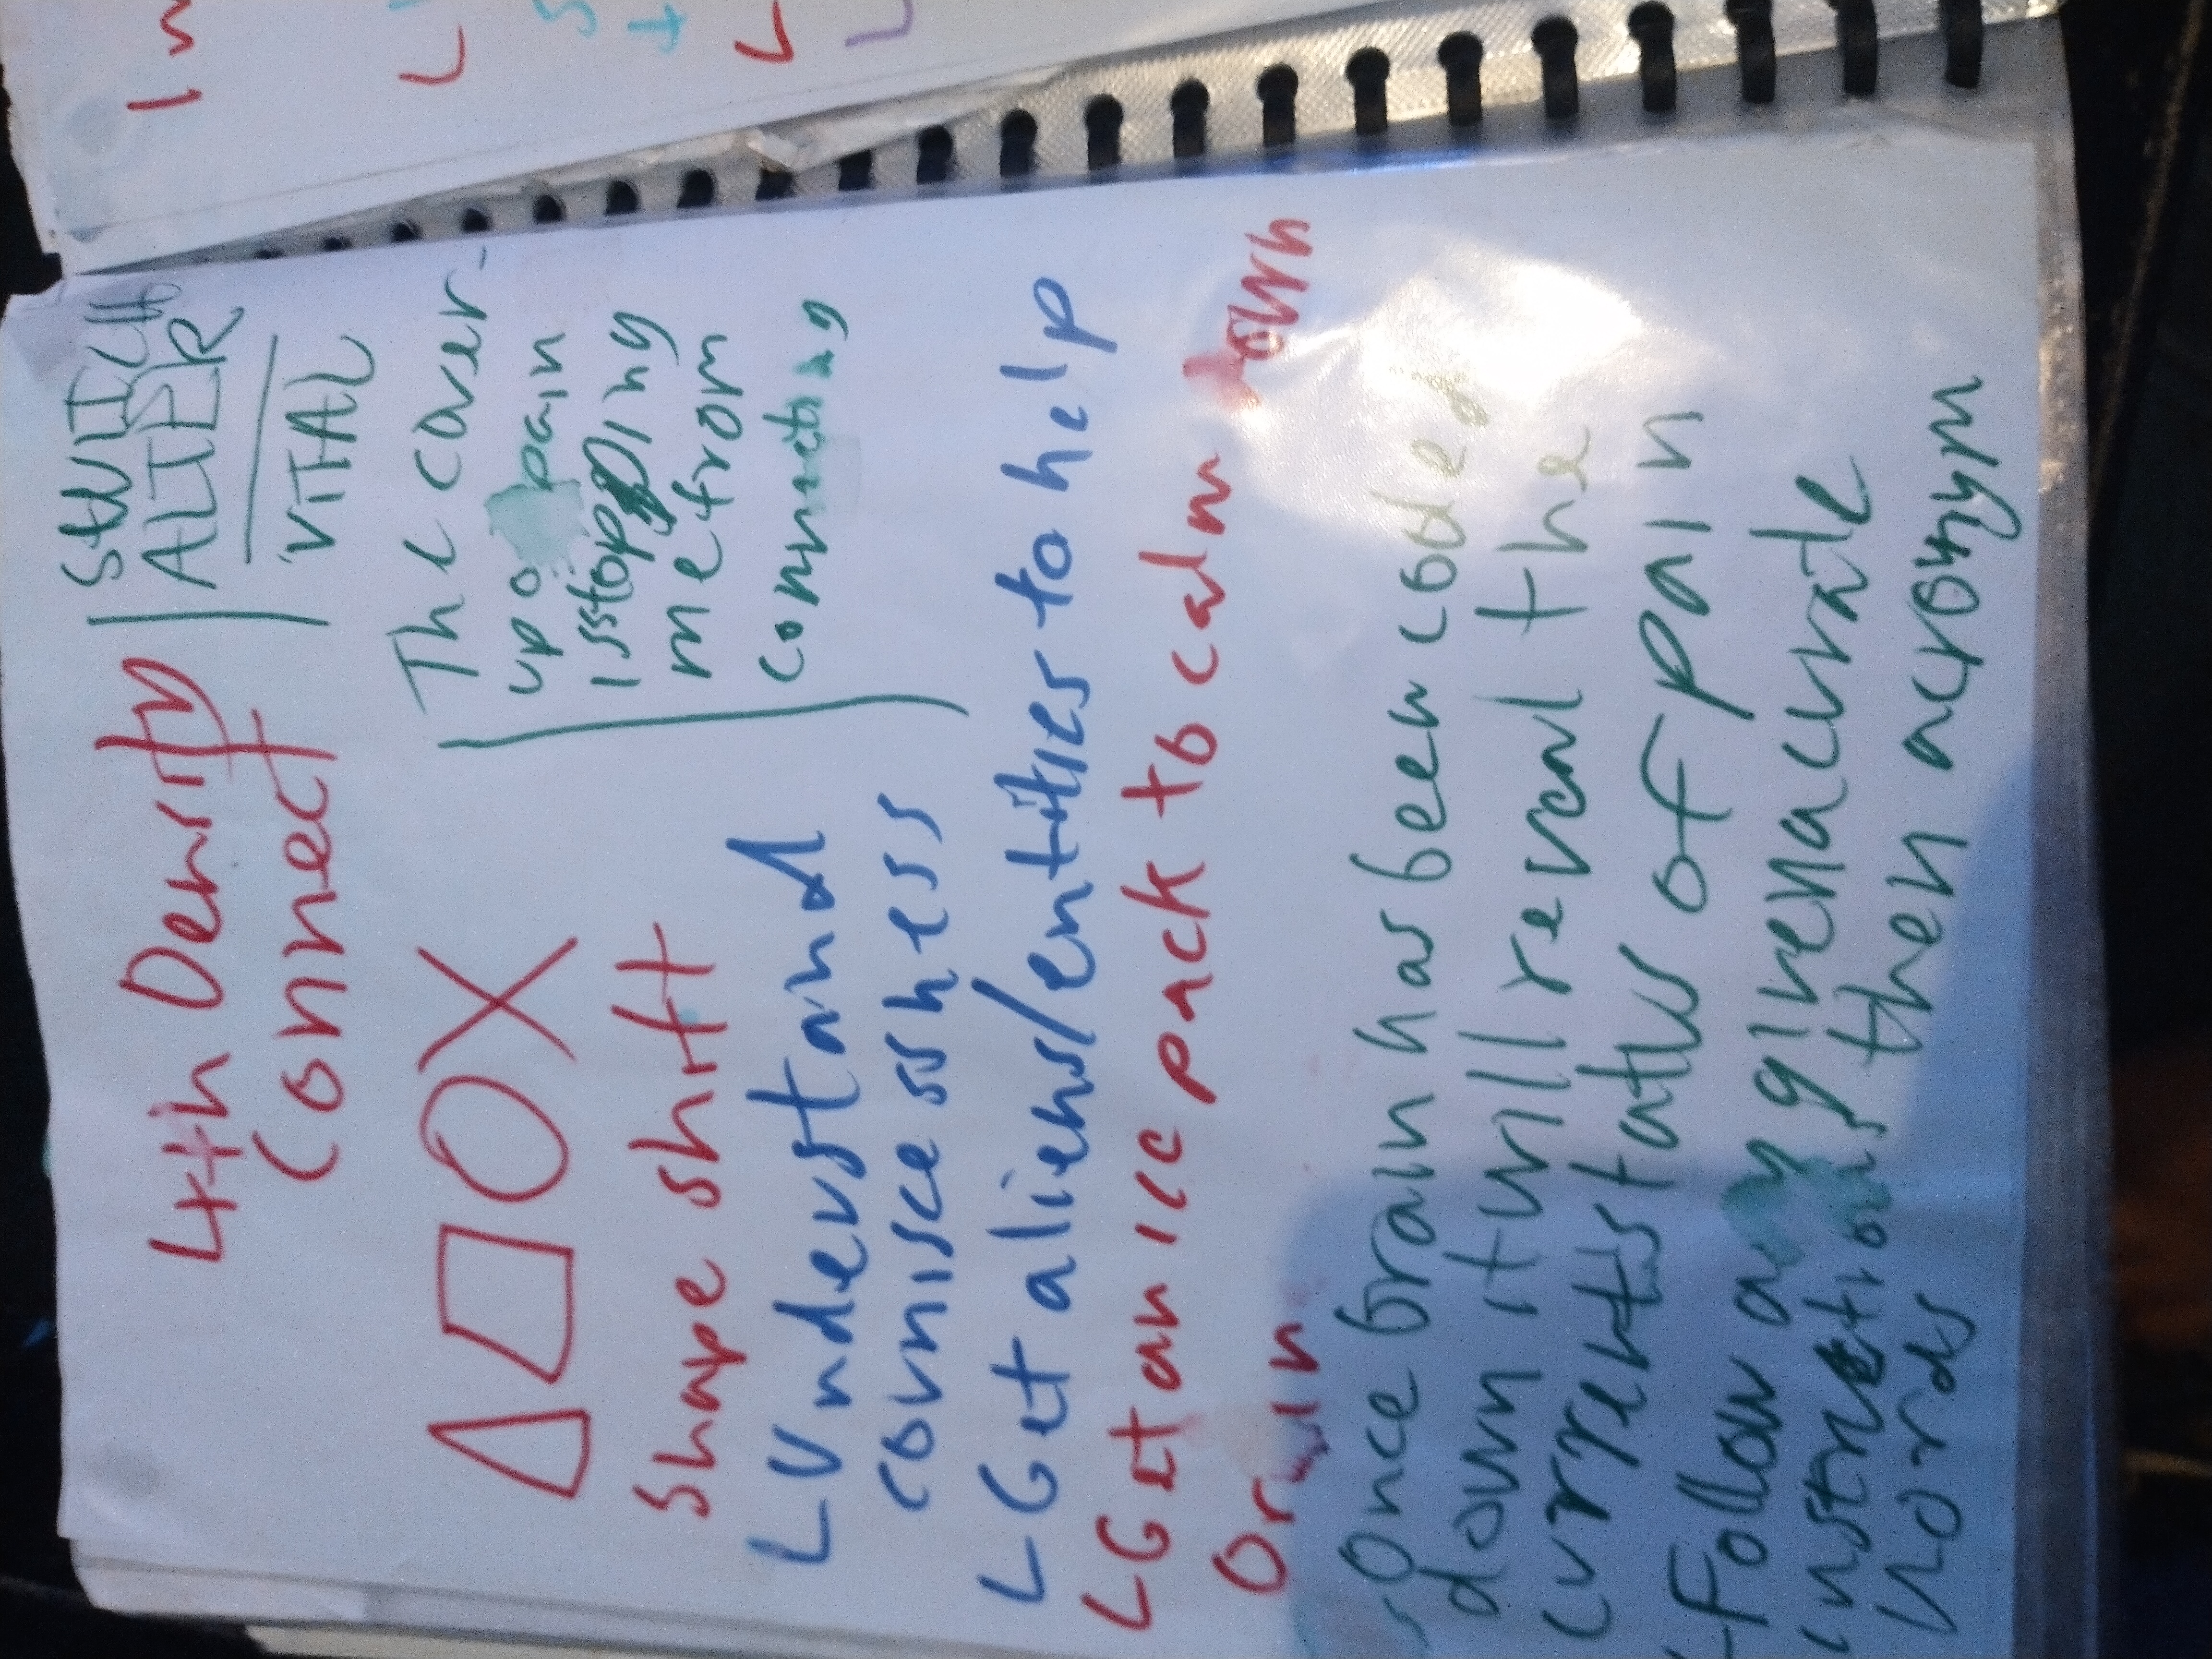 4th Density
Connect
SWITCH
ALTER
VITAL
The cover-
up o pain
is stopping
me from
connecting
Shape shift
Understand
cornisce sshess
Get aliens/entities to help
Get an ice pack to calm down
brain
Once brain has been cooled
down it will reveal the
currents status of pain
Follow any given acurate
instructions then acronym
words